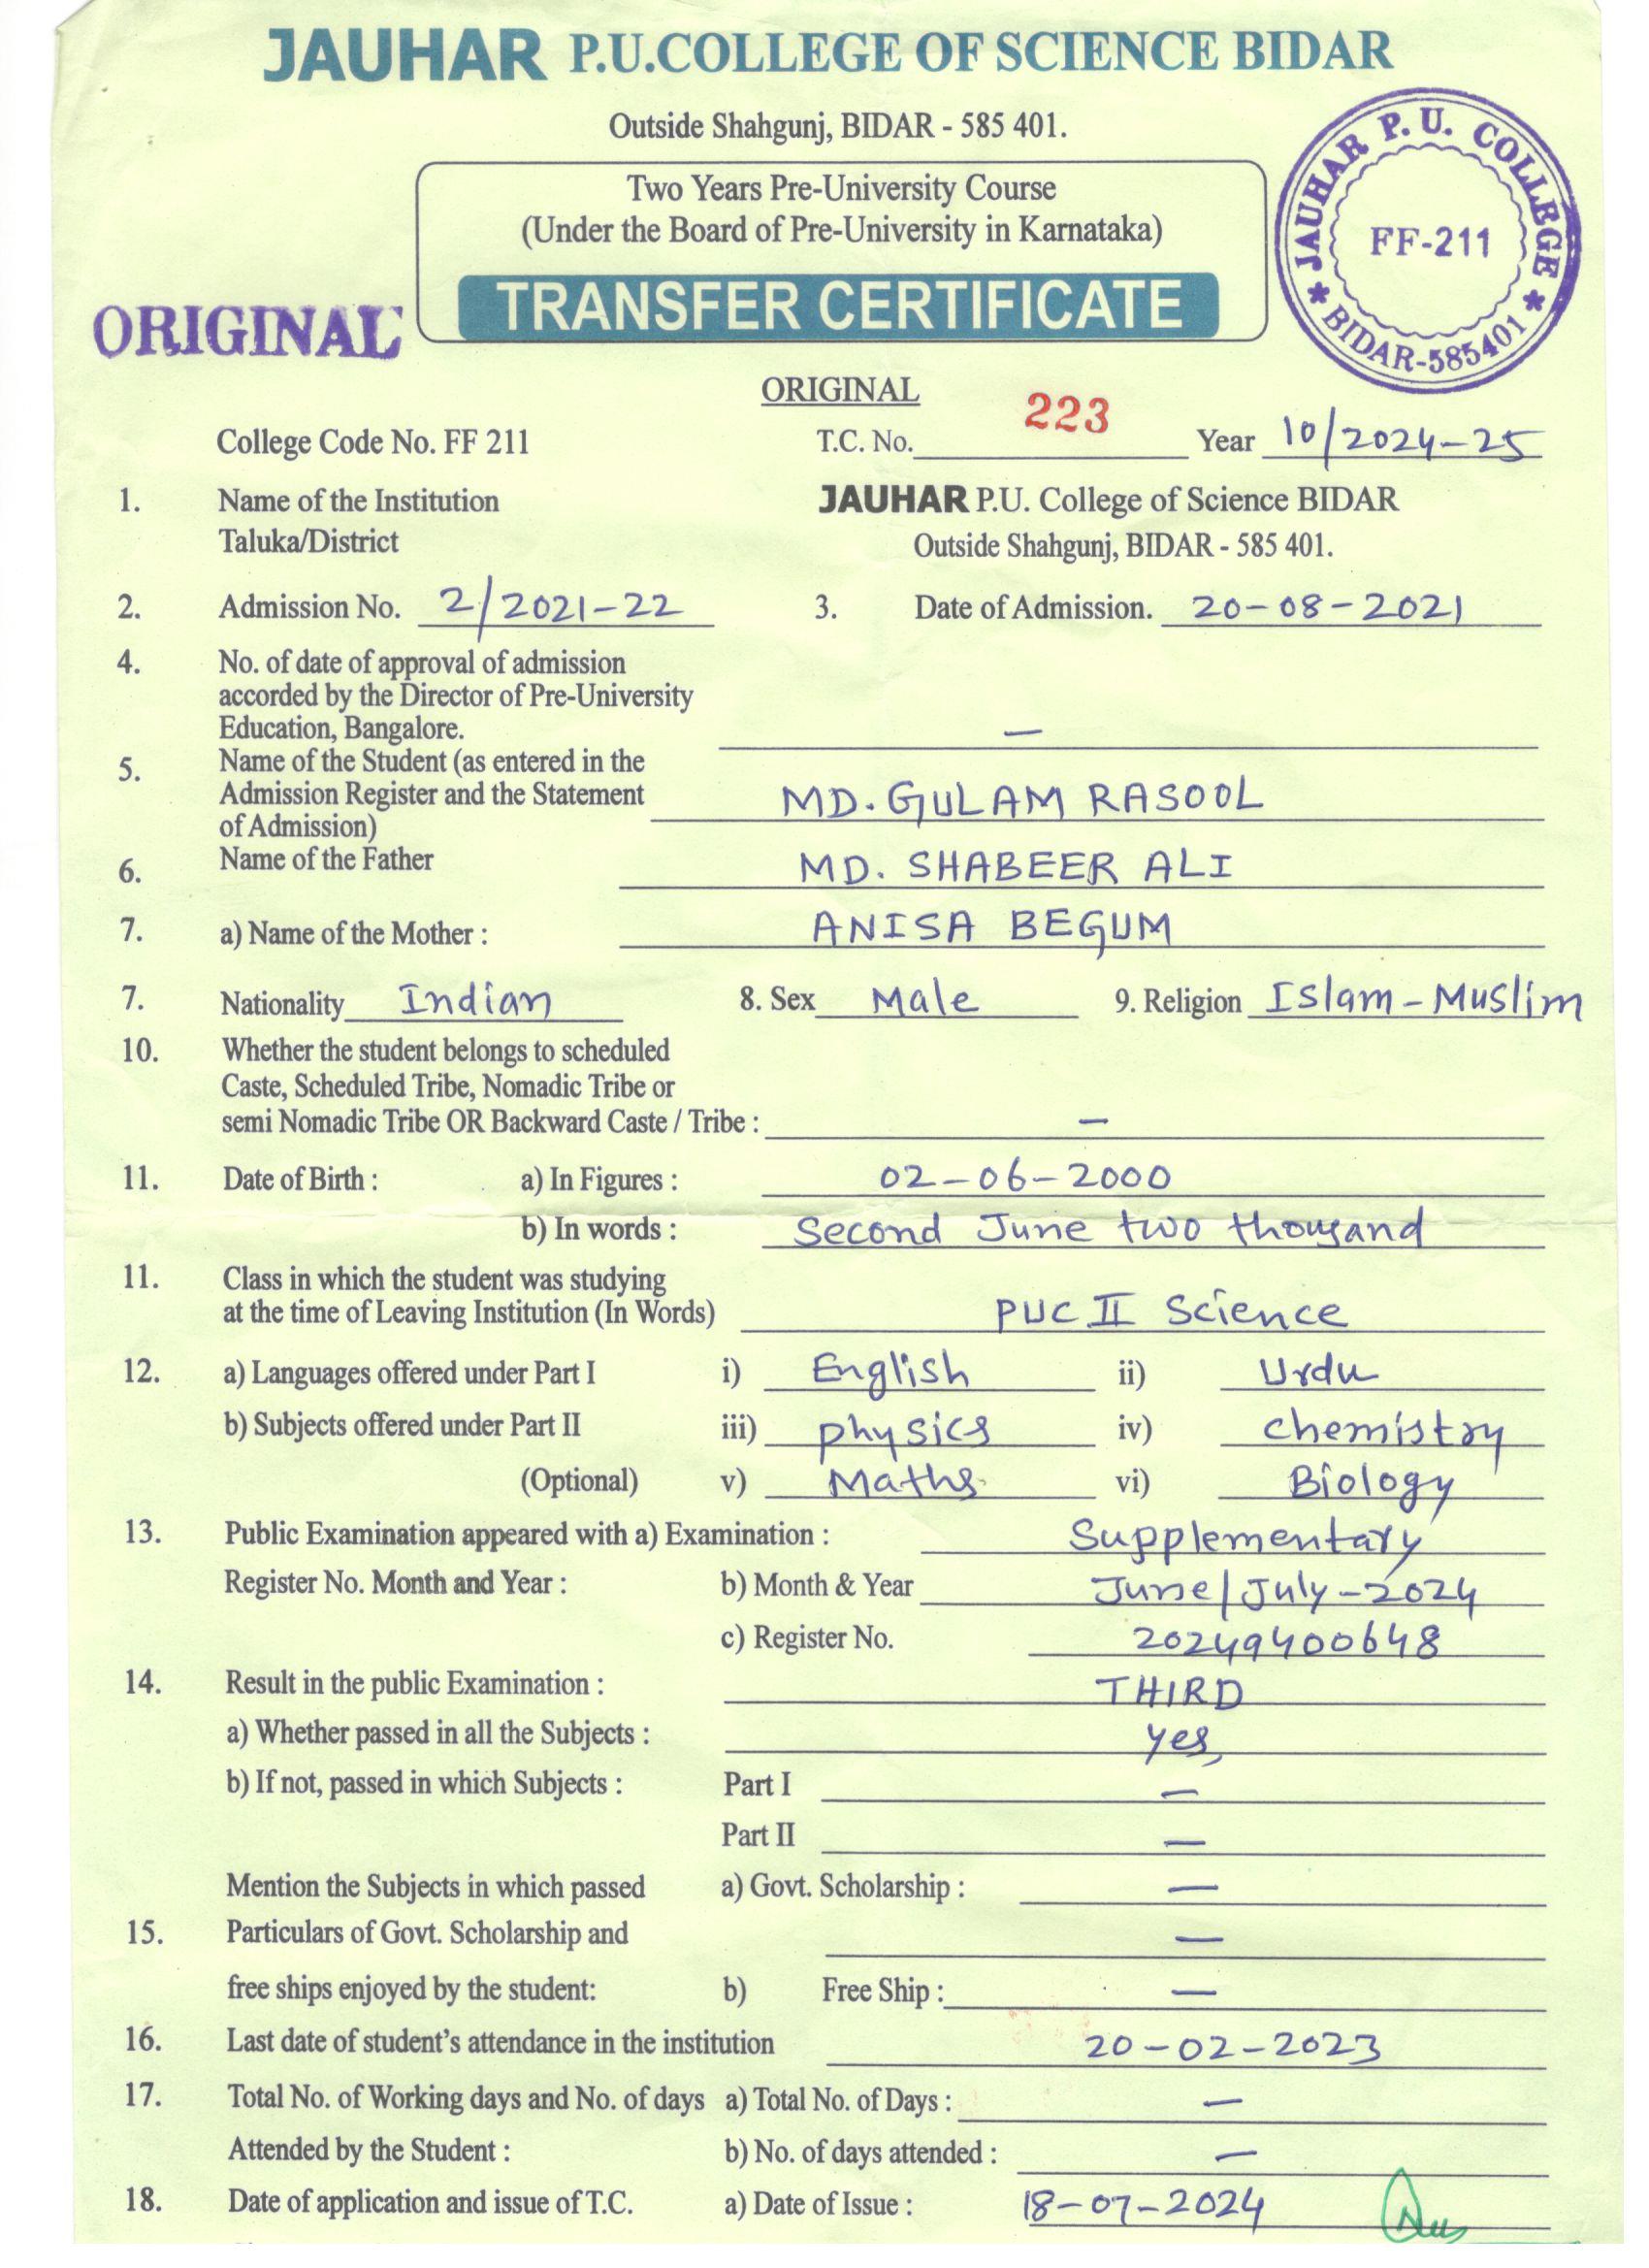 JAUHAR P.U.COLLEGE OF SCIENCE BIDAR
Outside Shahgunj, BIDAR - 585 401.
Two Years Pre-University Course
(Under the Board of Pre-University in Karnataka)
TRANSFER CERTIFICATE
JAUHAR P. U. COLLEGE
FF-211
* BIDAR-585401 *
ORIGINAL
ORIGINAL
College Code No. FF 211 T.C. No. 223 Year 10/2024-25
1. Name of the Institution JAUHAR P.U. College of Science BIDAR
Taluka/District Outside Shahgunj, BIDAR - 585 401.
2. Admission No. 2/2021-22 3. Date of Admission. 20-08-2021
4. No. of date of approval of admission
accorded by the Director of Pre-University
Education, Bangalore. —
5. Name of the Student (as entered in the
Admission Register and the Statement MD. GULAM RASOOL
of Admission)
6. Name of the Father MD. SHABEER ALI
7. a) Name of the Mother : ANISA BEGUM
7. Nationality Indian 8. Sex Male 9. Religion Islam - Muslim
10. Whether the student belongs to scheduled
Caste, Scheduled Tribe, Nomadic Tribe or
semi Nomadic Tribe OR Backward Caste / Tribe : —
11. Date of Birth : a) In Figures : 02-06-2000
b) In words : Second June two thousand
11. Class in which the student was studying
at the time of Leaving Institution (In Words) PUC II Science
12. a) Languages offered under Part I i) English ii) Urdu
b) Subjects offered under Part II iii) physics iv) chemistry
(Optional) v) Maths vi) Biology
13. Public Examination appeared with a) Examination : Supplementary
Register No. Month and Year : b) Month & Year June/July-2024
c) Register No. 20249400648
14. Result in the public Examination : THIRD
a) Whether passed in all the Subjects : yes
b) If not, passed in which Subjects : Part I —
Part II —
Mention the Subjects in which passed a) Govt. Scholarship : —
15. Particulars of Govt. Scholarship and —
free ships enjoyed by the student: b) Free Ship : —
16. Last date of student's attendance in the institution 20-02-2023
17. Total No. of Working days and No. of days a) Total No. of Days : —
Attended by the Student : b) No. of days attended : —
18. Date of application and issue of T.C. a) Date of Issue : 18-07-2024